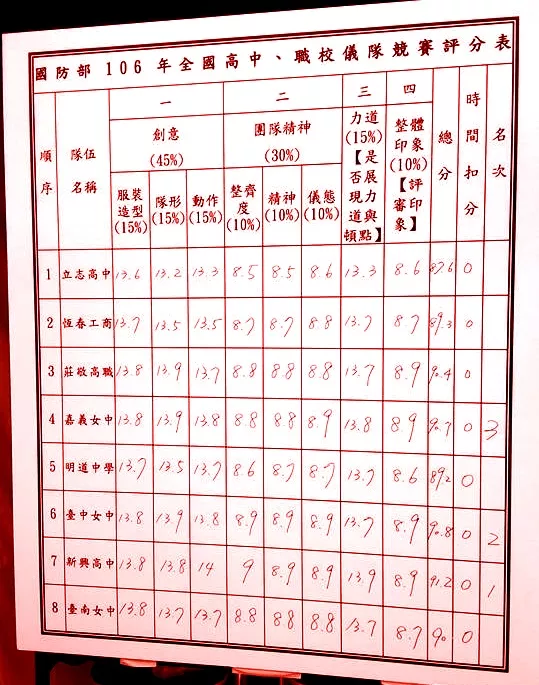 國防部 106 年全國高中、職校儀隊競賽評分表
順序 隊伍名稱 一 創意 (45%) 二 團隊精神 (30%) 三 力道 (15%) 【是否展現力道與頓點】 四 整體印象 (10%) 【評審印象】 總分 時間扣分 名次
服裝造型 (15%) 隊形 (15%) 動作 (15%) 整齊度 (10%) 精神 (10%) 儀態 (10%)
1 立志高中 13.6 13.2 13.3 8.5 8.5 8.6 13.3 8.6 87.6 0
2 恆春工商 13.7 13.5 13.5 8.7 8.7 8.8 13.7 8.7 89.3 0
3 莊敬高職 13.8 13.9 13.7 8.8 8.8 8.8 13.7 8.9 90.4 0
4 嘉義女中 13.8 13.9 13.8 8.8 8.8 8.9 13.8 8.9 90.7 0 3
5 明道中學 13.7 13.5 13.7 8.6 8.7 8.7 13.7 8.6 89.2 0
6 臺中女中 13.8 13.9 13.8 8.9 8.9 8.9 13.7 8.9 90.8 0 2
7 新興高中 13.8 13.8 14 9 8.9 8.9 13.9 8.9 91.2 0 1
8 臺南女中 13.8 13.7 13.7 8.8 8.8 8.8 13.7 8.7 90 0